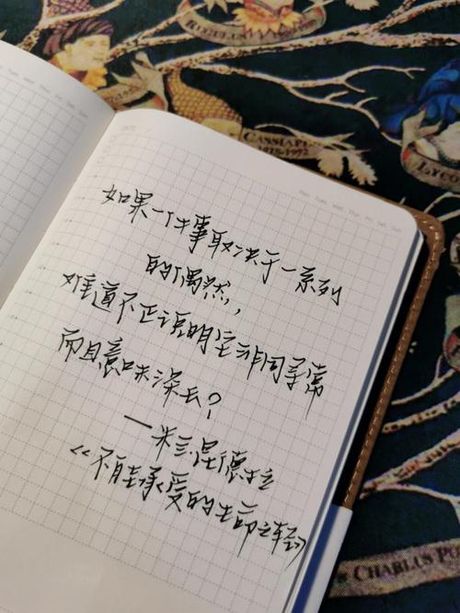 如果一件事取决于一系列
的偶然，
难道不正说明它非同寻常
而且意味深长？
——米兰昆德拉
《不能承受的生命之轻》
CASSIOPEIA
1915-1992
LYCO
CHARLUS PO